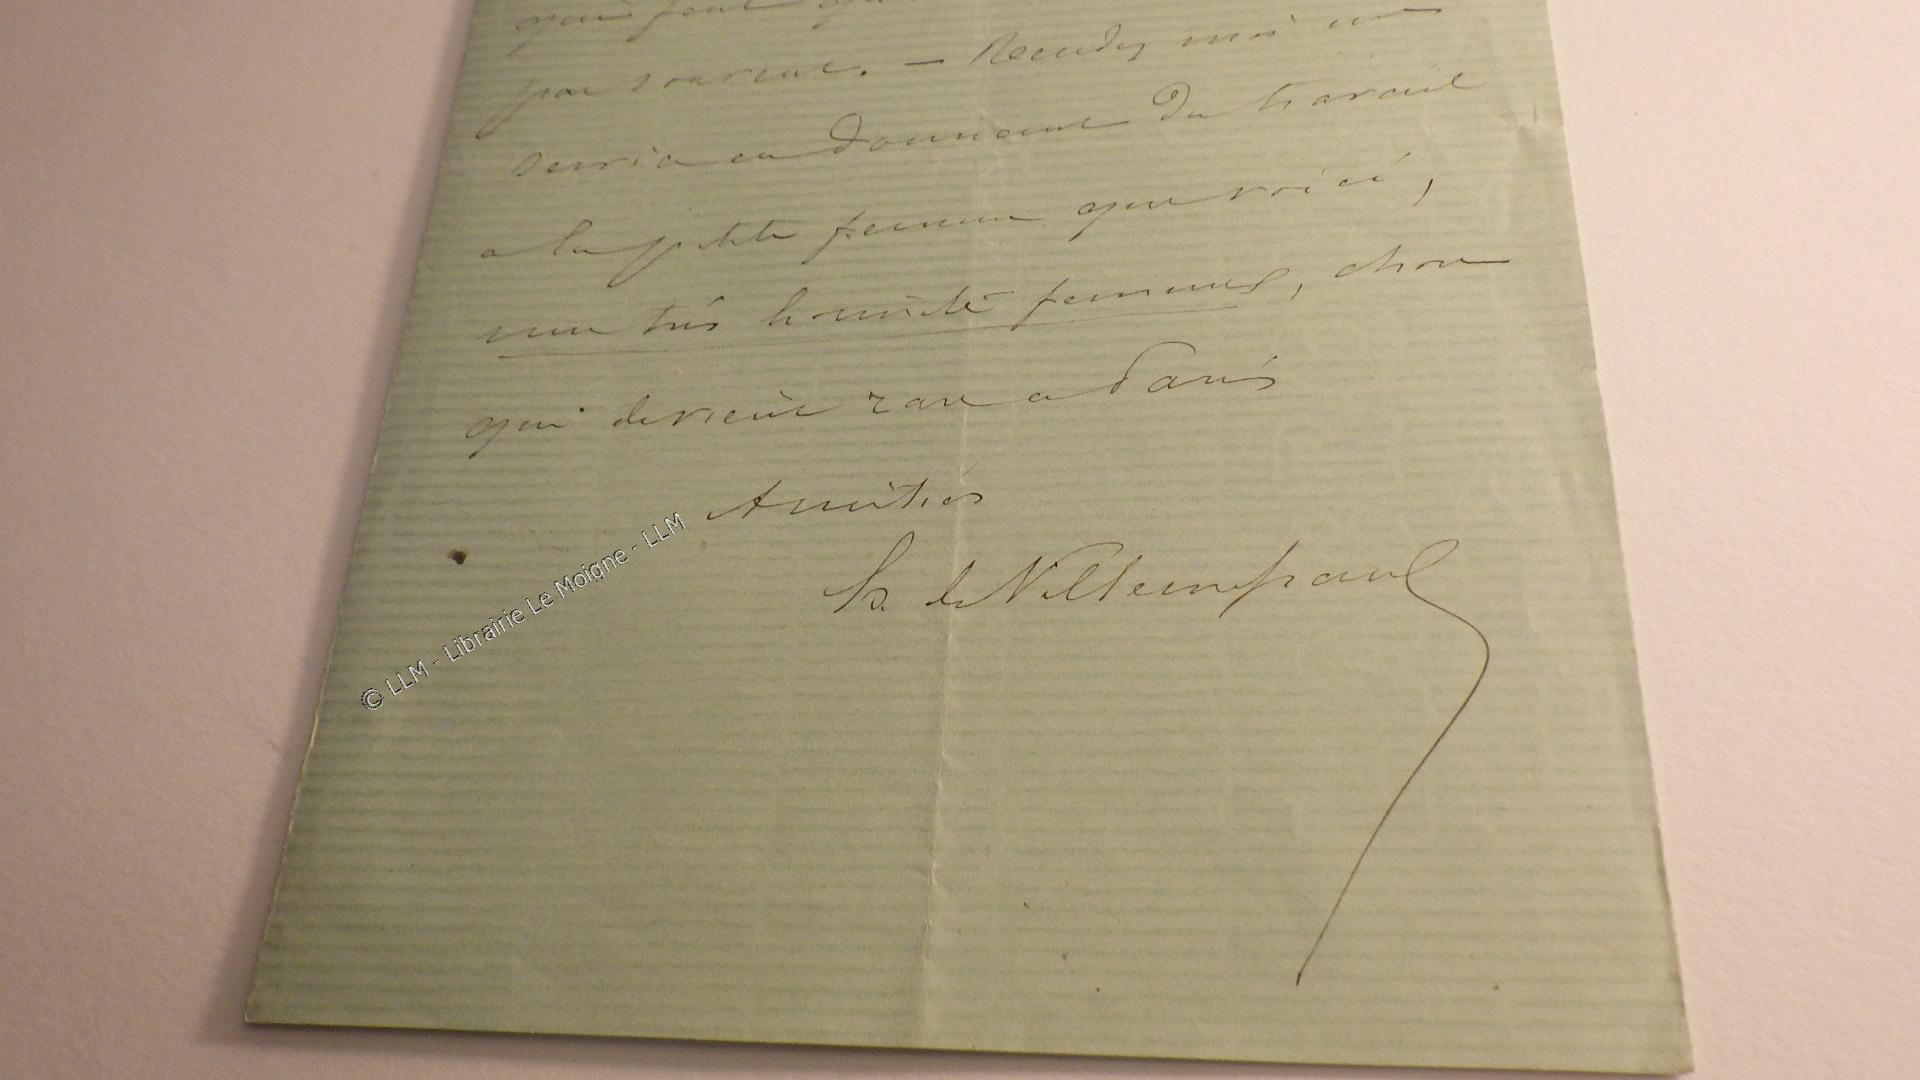 qui font
pas souvent. – Rendez moi un
service en donnant du travail
a la petite femme que voici,
une très honnête femme, chose
qui devient rare a Paris
Amitiés
h. de Villemessant
© LLM - Librairie Le Moigne - LLM